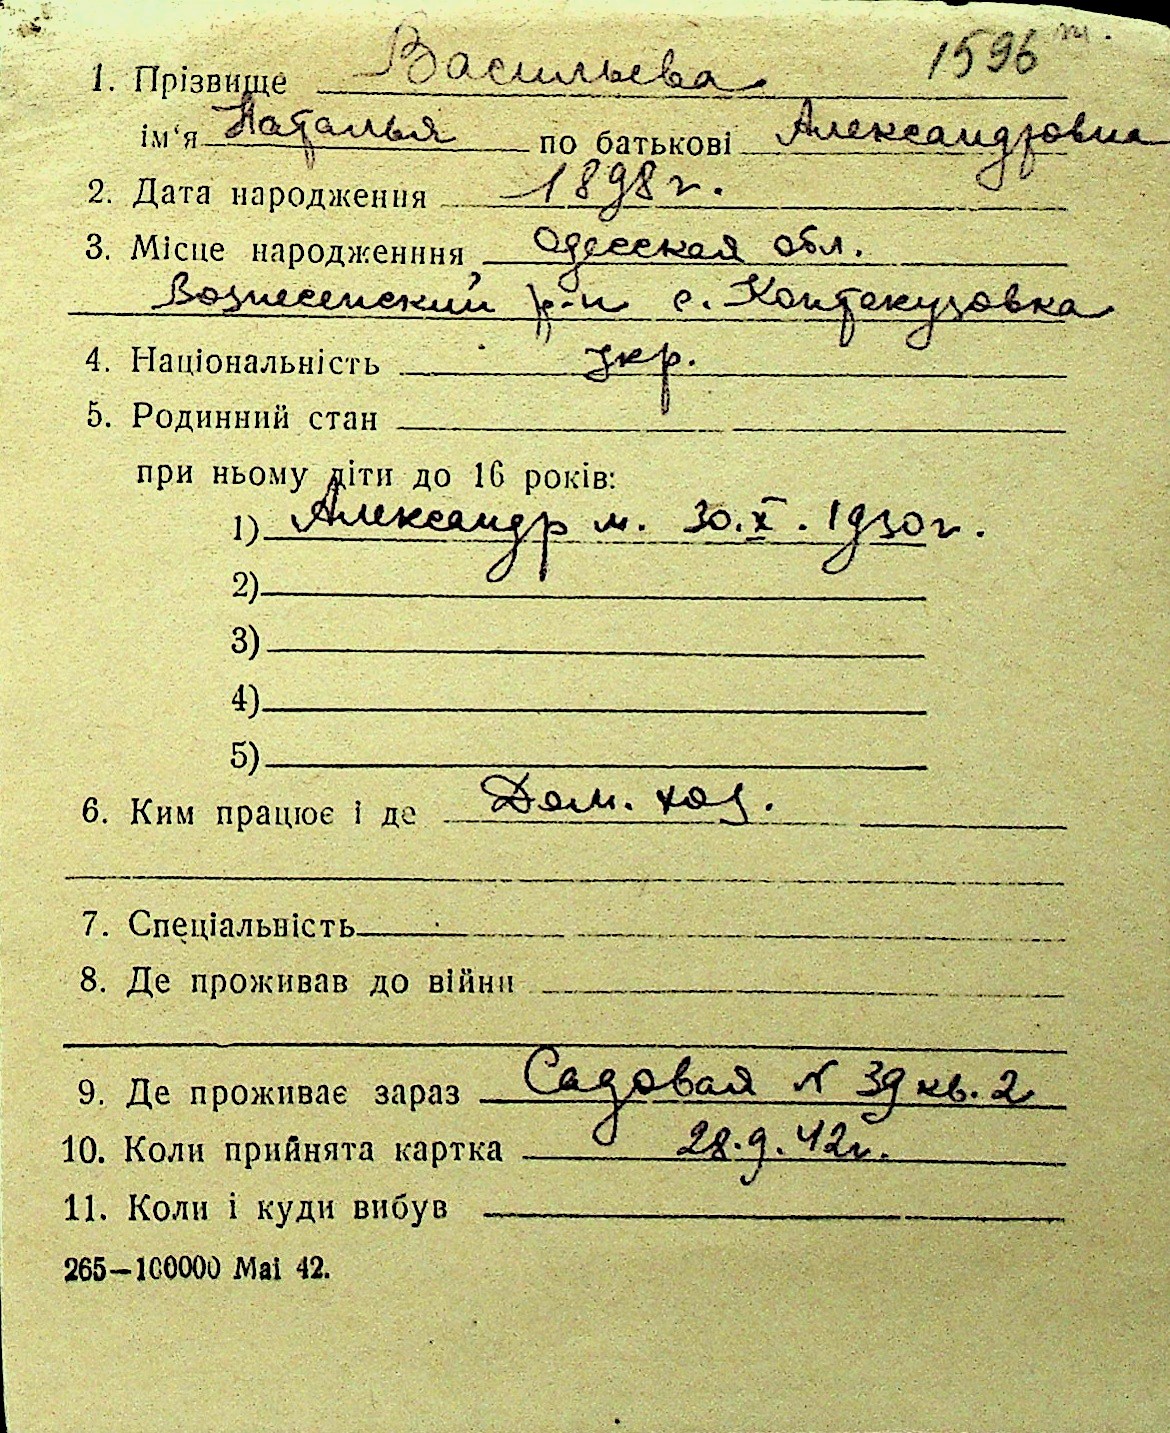 1596 м.
1. Прізвище Васильева
ім‘я Наталья по батькові Александровна
2. Дата народження 1898 г.
3. Місце народженння Одесская обл.
Вознесенский р-н с. Контакузовка
4. Національність укр.
5. Родинний стан
при ньому діти до 16 років:
1) Александр м. 30.X. 1930 г.
2)
3)
4)
5)
6. Ким працює і де Дом. хоз.
7. Спеціальність
8. Де проживав до війни
9. Де проживає зараз Садовая N 39 кв. 2
10. Коли прийнята картка 28.9.42 г.
11. Коли і куди вибув
265—100000 Mai 42.